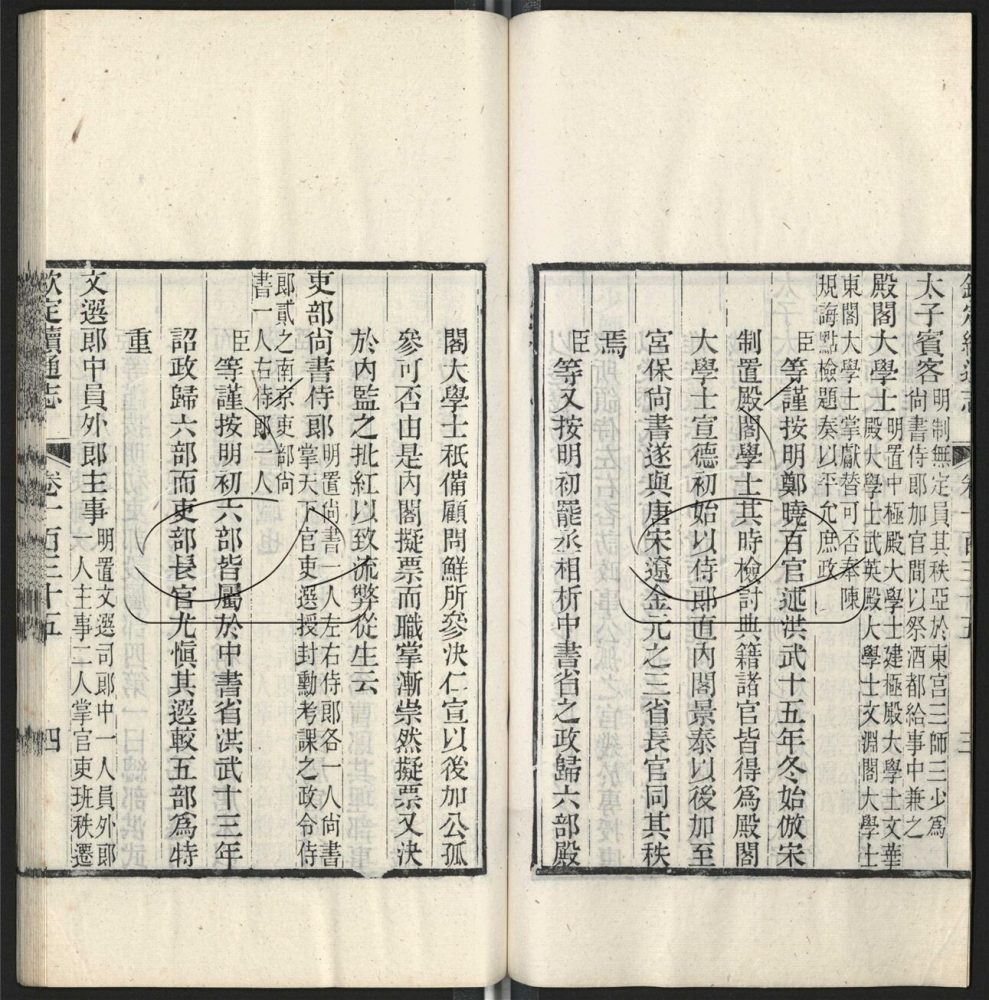 太子賓客 明制無定員其秩亞於東宮三師三少爲
尚書侍郎加官間以祭酒都給事中兼之
殿閣大學士 明置中極殿大學士建極殿大學士文華
殿大學士武英殿大學士文淵閣大學士
東閣大學士掌獻替可否奉陳
規誨點檢題奏以平允庶政
臣等謹按明鄭曉百官述洪武十五年冬始倣宋
制置殿閣學士其時檢討典籍諸官皆得爲殿閣
大學士宣德初始以侍郎直內閣景泰以後加至
宮保尚書遂與唐宋遼金元之三省長官同其秩
焉
臣等又按明初罷丞相析中書省之政歸六部殿
閣大學士秪備顧問鮮所參決仁宣以後加公孤
參可否由是內閣擬票而職掌漸崇然擬票又決
於內監之批紅以致流弊從生云
吏部尚書侍郎 明置尚書一人左右侍郎各一人尚書
掌天下官吏選授封勳考課之政令侍
郎貳之南京吏部尚
書一人右侍郎一人
臣等謹按明初六部皆屬於中書省洪武十三年
詔政歸六部而吏部長官尤慎其選較五部爲特
重
文選郎中員外郎主事 明置文選司郎中一人員外郎
一人主事二人掌官吏班秩遷
欽定續通志 卷一百三十五 四